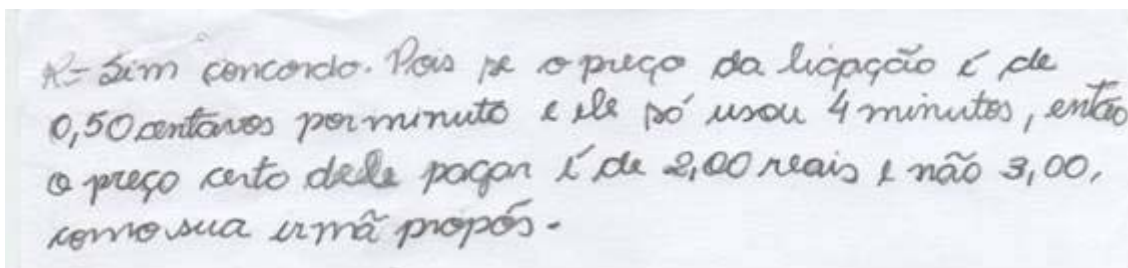 R- Sim concordo. Pois se o preço da ligação é de
0,50 centavos por minuto e ele só usou 4 minutos, então
o preço certo dele pagar é de 2,00 reais e não 3,00,
como sua irmã propôs.